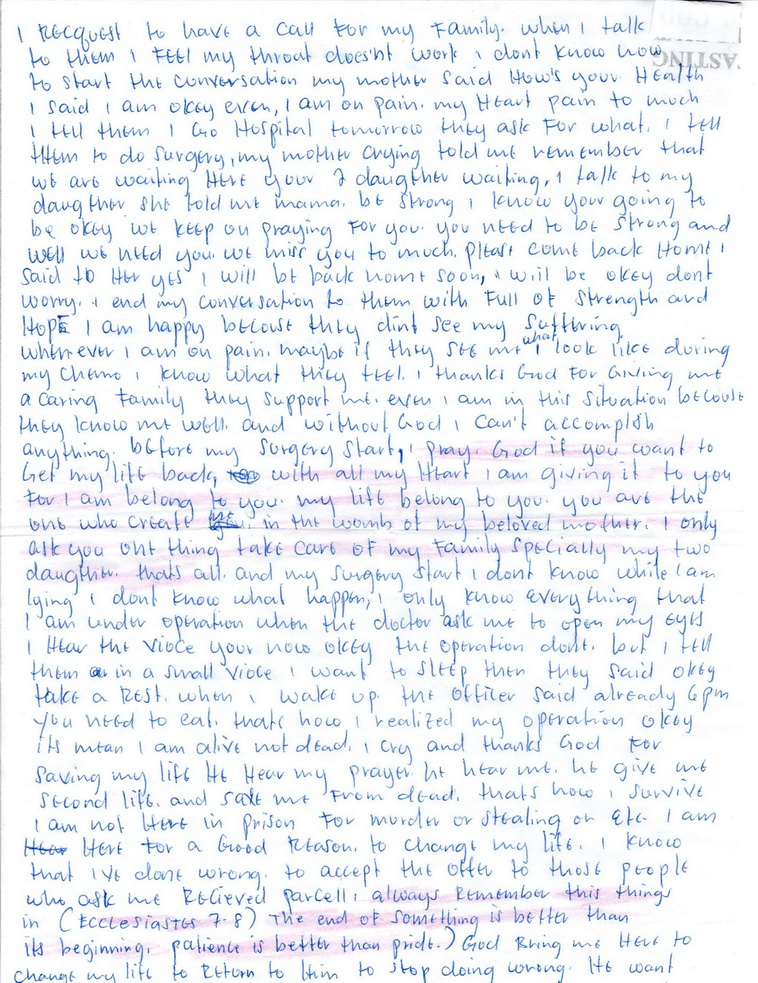 I RECquest to have a call for my Family. when i talk
to them i FEEL my throat does'nt work i dont know how
to start the conversation my mother said How's your Health
I said i am okey even, I am on pain. my Heart pain to much
I tell them I Go Hospital tomorrow they ask For what. I tell
them to do surgery, my mother crying told me remember that
we are waiting Here your 2 daughter waiting, I talk to my
daugther she told me mama. be strong i know your going to
be okey we keep on praying For you. you need to be strong and
well we need you. we miss you to much. please come back Home i
said to Her yes i will be back home soon, i will be okey dont
worry. i end my conversation to them with full of strength and
HOPE I am happy becouse they dint see my suffering
whenever I am on pain. maybe if they see me what i look like during
my chemo i know what they feel. i thanks God For Giving me
a caring Family they support me. even i am in this situation becouse
they know me well. and without God i can't accomplish
anything. before my surgery start, i pray. God if you want to
Get my life back, with all my Heart i am giving it to you
For I am belong to you. my life belong to you. you are the
one who create in the womb of my beloved mother. I only
ask you one thing take care of my family specially my two
daugther. thats all. and my surgery start i dont know while i am
lying i dont know what happen, i only know everything that
I am under operation when the doctor ask me to open my eyes
I Hear the vioce your now okey the operation done. but I tell
them in a small vioce i want to sleep then they said okey
take a rest. when i wake up the officer said already 6pm
you need to eat. thats how i realized my operation okey
its mean i am alive not dead. i cry and thanks God For
saving my life He Hear my prayer. he hear me. he give me
second life. and save me from dead. thats how i survive
I am not Here in prison For murder or stealing or Etc. I am
Here for a Good Reason. to change my life. i know
that ive done wrong. to accept the offer to those people
who ask me Relieved parcell, always remember this things
in (ECClESiASTES 7-8) The end of something is better than
its beginning. patience is better than pride.) God Bring me Here to
change my life to Return to Him to stop doing wrong. He want